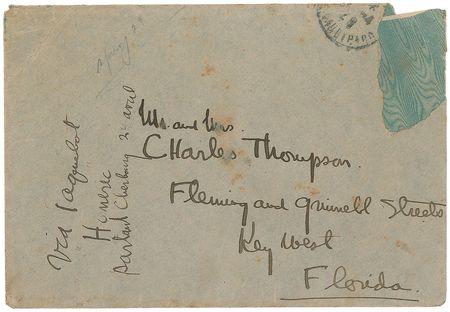 Mr. and Mrs.
Charles Thompson.
Fleming and Grinnell Streets
Key West
Florida.
Via Paquebot
Homeric
partant Cherbourg 2 avril